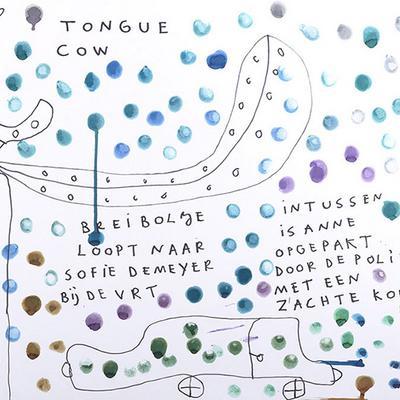 TONGUE
COW
BREIBOLTJE
LOOPT NAAR
SOFIE DEMEYER
BIJ DE VRT
INTUSSEN
IS ANNE
OPGEPAKT
DOOR DE POLI
MET EEN
ZACHTE KO